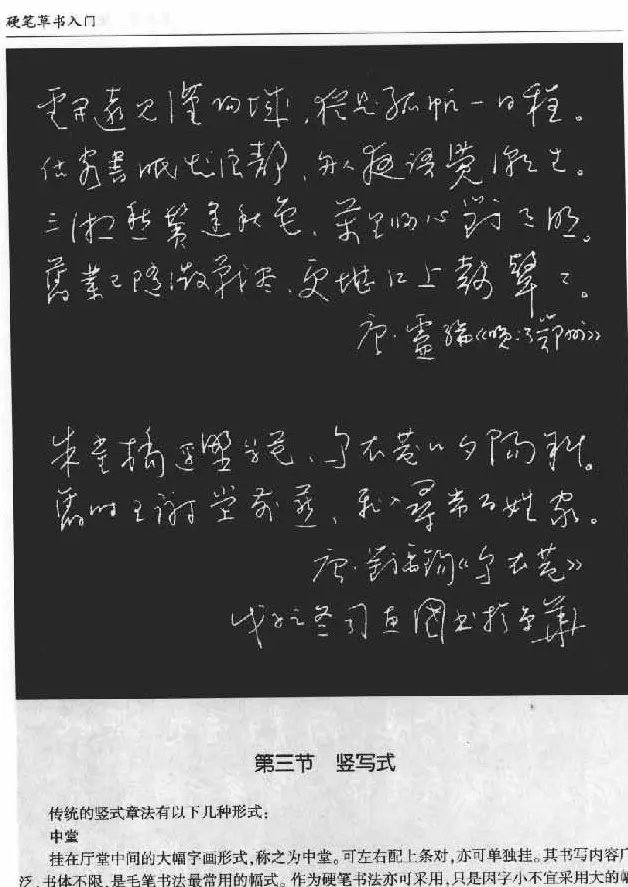 硬笔草书入门
雲開遠見漢陽城，猶是孤帆一日程。
估客晝眠知浪靜，舟人夜語覺潮生。
三湘愁鬢逢秋色，萬里歸心對月明。
舊業已隨征戰盡，更堪江上鼓鼙聲。
唐·盧綸《晚次鄂州》
朱雀橋邊野草花，烏衣巷口夕陽斜。
舊時王謝堂前燕，飛入尋常百姓家。
唐·劉禹錫《烏衣巷》
第三节 竖写式
传统的竖式章法有以下几种形式：
中堂
挂在厅堂中间的大幅字画形式，称之为中堂。可左右配上条对，亦可单独挂。其书写内容广
泛，书体不限，是毛笔书法最常用的幅式。作为硬笔书法亦可采用，只是因字小不宜采用大的幅